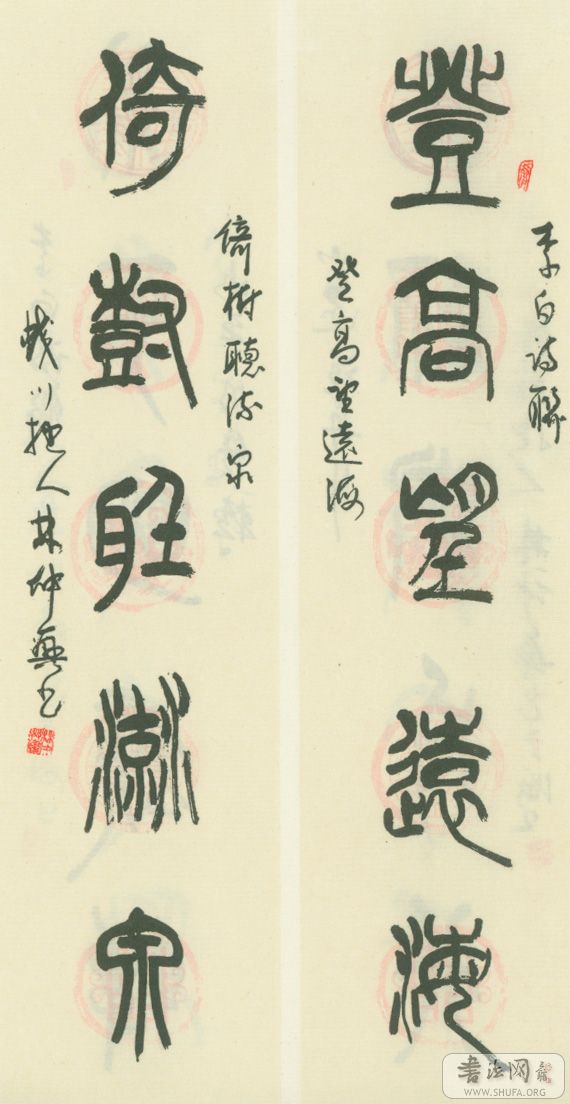 李白詩聯
登高望遠海
登高望遠海
倚樹聽流泉
倚樹聽流泉
川 人林仲興书
書法网
WWW.SHUFA.ORG